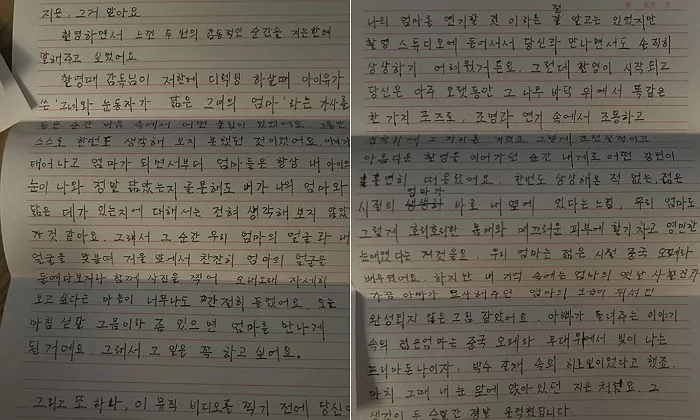 지은, 그거 알아요
촬영하면서 느낀 두 번의 감동적인 순간을 지은한테
말해주고 싶었어요.
촬영때 감독님이 저한테 디렉팅 하실때 아이유가
쓴 '그녀와 눈동자가 닮은 그녀의 엄마' 라는 가사를
듣는 순간 마음 속에서 어떤 울림이 있었어요. 그동안
스스로 한번도 생각해 보지 못했던 것이었어요. 아이가
태어나고 엄마가 되면서부터 엄마들은 항상 내 아이의
눈이 나와 정말 닮았는지 궁금해도 내가 나의 엄마와
닮은 데가 있는지에 대해서는 전혀 생각해 보지 않았
던것 같아요. 그래서 그 순간 우리 엄마의 얼굴과 내
얼굴을 맞붙여 거울 앞에서 찬찬히 엄마의 얼굴을
들여다보거나 함께 사진을 찍어 오래도록 자세히
보고싶다는 마음이 너무나도 간절히 들었어요. 오늘
마침 설날 그믐이라 좀 있으면 엄마를 만나게
될 거예요. 그래서 그 일은 꼭 하고 싶어요.
그리고 또 하나, 이 뮤직 비디오를 찍기 전에 당신이
나의 엄마를 연기할 것 이라는 걸 잘 알고는 있었지만
촬영 스튜디오에 들어가서 당신과 만나면서도 솔직히
상상하기 어려웠거든요. 그런데 촬영이 시작되고
당신은 아주 오랫동안 그 나무 바닥 위에서 똑같은
한가지 포즈로, 조명과 연기 속에서 조용하고
침착하게 그 자리를 지켰죠. 그렇게 초현실적이고
아름다운 촬영을 이어가던 순간 내게도 어떤 장면이
홀연히 떠올랐어요. 한번도 상상해본 적 없는, 젊은
시절의 엄마가 바로 내 옆에 있다는 느낌, 우리 엄마도
그렇게 호리호리한 몸매와 매끄러운 피부에 활기차고 영민한
눈매였다는 것을요. 우리 엄마는 젊은 시절 중국 오페라
배우였어요. 하지만 내 기억 속에는 엄마의 옛날 사진과
가끔 아빠가 묘사해주던 엄마의 그것이 뒤섞인
완성되지 않은 그림 같았어요. 아빠가 들려주는 이야기
속의 젊은엄마는 중국 오페라 무대 위에서 빛이 나는
프리마돈나이자, 박수 갈채 속의 히로인이었다고 했죠.
마치 그때 내 눈 앞에 앉아있던 지은 처럼요. 그
생각이 든 순간 정말 울컥했답니다.